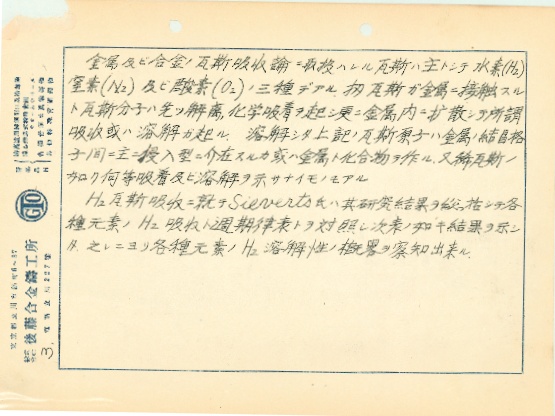 金属及ビ合金ノ瓦斯吸収論ニ取扱ハレル瓦斯ハ主トシテ水素(H₂)
窒素(N₂)及ビ酸素(O₂)ノ三種デアル. 扨瓦斯ガ金属ニ接触スル
ト瓦斯分子ハ先ヅ解離, 化学吸着ヲ起シ更ニ金属内ニ拡散シテ所謂
吸収或ハ溶解ガ起ル. 溶解シタ上記ノ瓦斯原子ハ金属ノ結晶格
子間ニ主ニ侵入型ニ介在スルカ或ハ金属ト化合物ヲ作ル. 又稀瓦斯ノ
如ク何等吸着及ビ溶解ヲ示サナイモノモアル
H₂瓦斯吸収ニ就テSieverts氏ハ其研究結果ヲ総括シテ各
種元素ノH₂吸収ト週期律表トヲ対照シ次表ノ如キ結果ヲ示シ
タ. 之レニヨリ各種元素ノH₂溶解性ノ概畧ヲ察知出来ル.
GIO
後藤合金鋳工所
3.